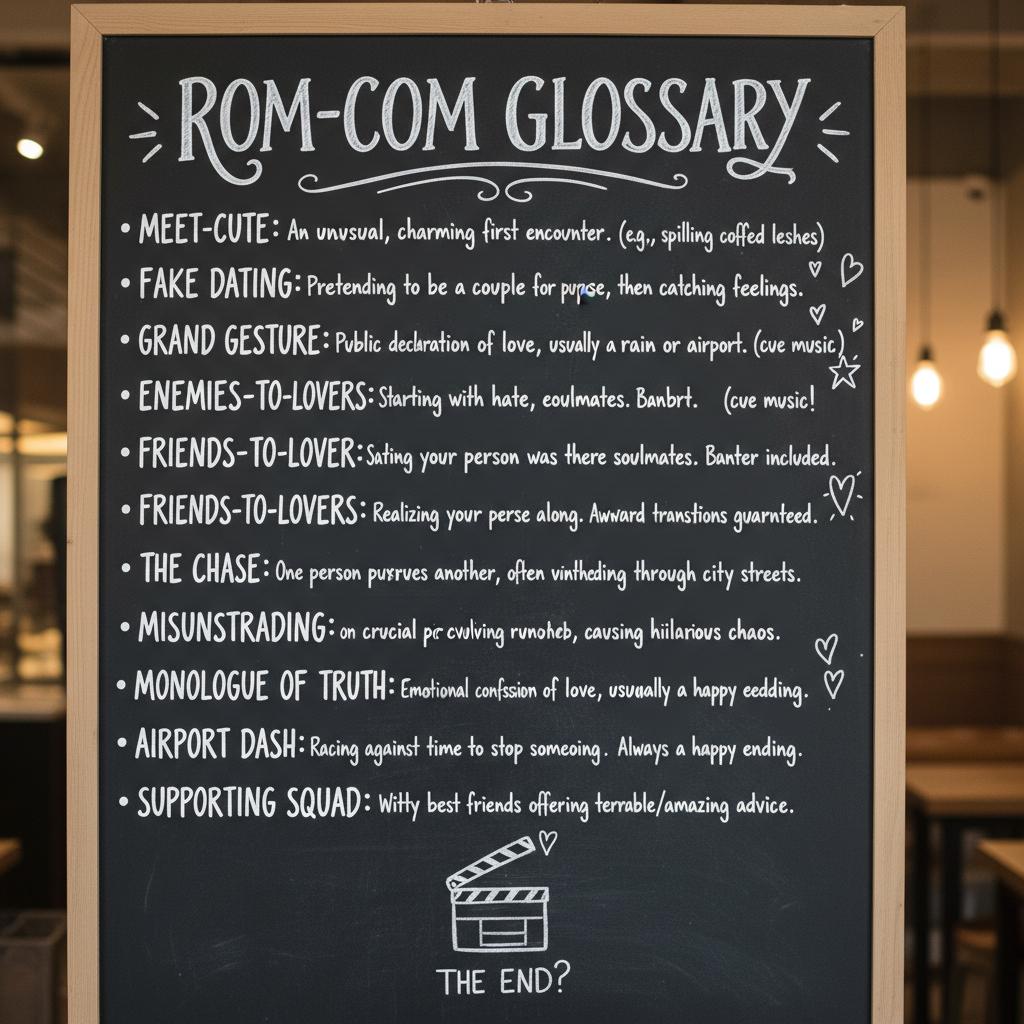 ROM-COM GLOSSARY
• MEET-CUTE: An unusual, charming first encounter. (e.g., spilling coffed leshes)
• FAKE DATING: Pretending to be a couple for, then catching feelings.
• GRAND GESTURE: Public declaration of love, usually a rain or airport. (cue music)
• ENEMIES-TO-LOVERS: Starting with hate, eoulmates. Banbrt. (cue music!
• FRIENDS-TO-LOVER: Sating your person was there soulmates. Banter included.
• FRIENDS-TO-LOVERS: Realizing your perse along. Awward transtions guarnteed.
• THE CHASE: One person purrves another, often vintheding through city streets.
• MISUNSTRADING: on crucial cvulving runoheb, causing hiilarious chaos.
• MONOLOGUE OF TRUTH: Emotional confssion of love, usuually a happy eedding.
• AIRPORT DASH: Racing against time to stop someoing. Always a happy ending.
• SUPPORTING SQUAD: Witty best friends offering terrable/amazing advice.
THE END?